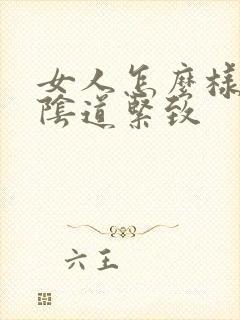 女人怎麼樣
陰道緊致
六王